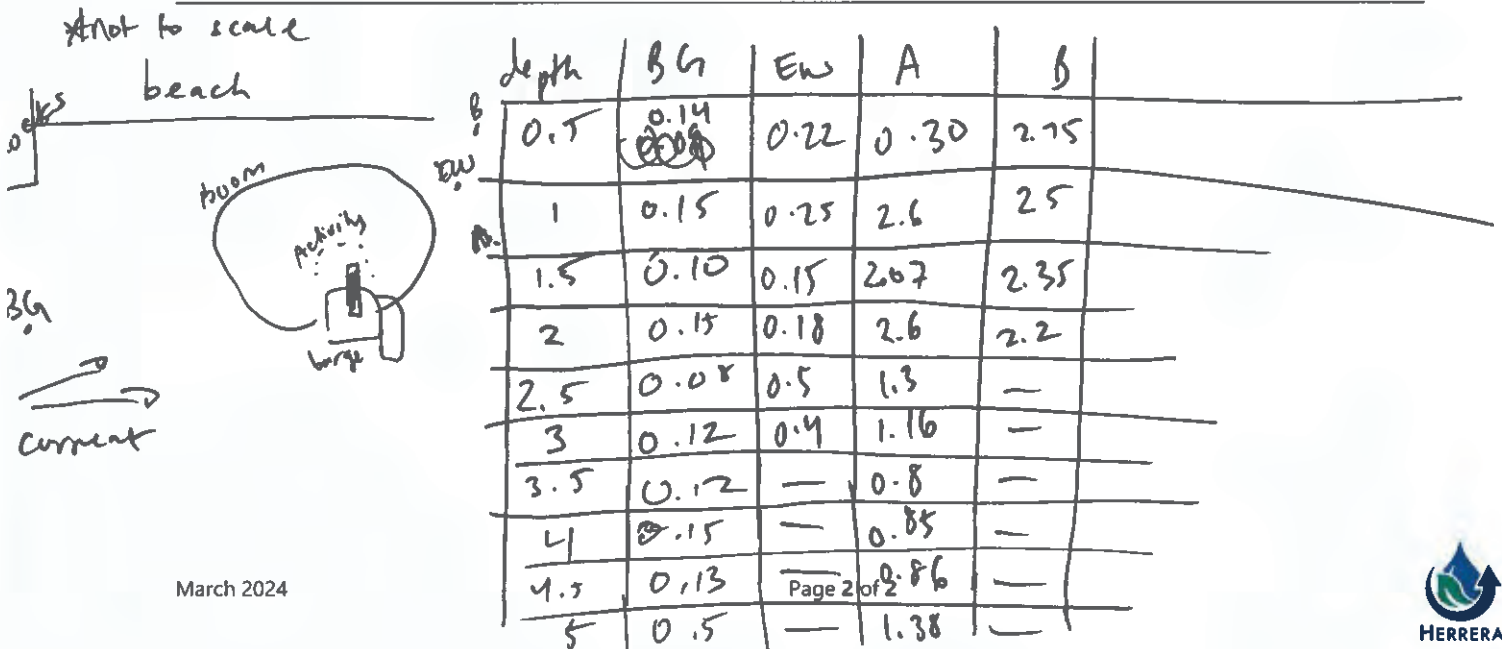 *not to scale
beach
boom
Activity
barge
BG
current
depth BG EW A B
B
0.5 0.14 0.22 0.30 2.75
EW
1 0.15 0.25 2.6 25
A
1.5 0.10 0.15 207 2.35
2 0.15 0.18 2.6 2.2
2.5 0.08 0.5 1.3 —
3 0.12 0.4 1.16 —
3.5 0.12 — 0.8 —
4 0.15 — 0.85 —
4.5 0.13 — 0.86 —
5 0.5 — 1.38 —
March 2024
Page 2 of 2
HERRERA